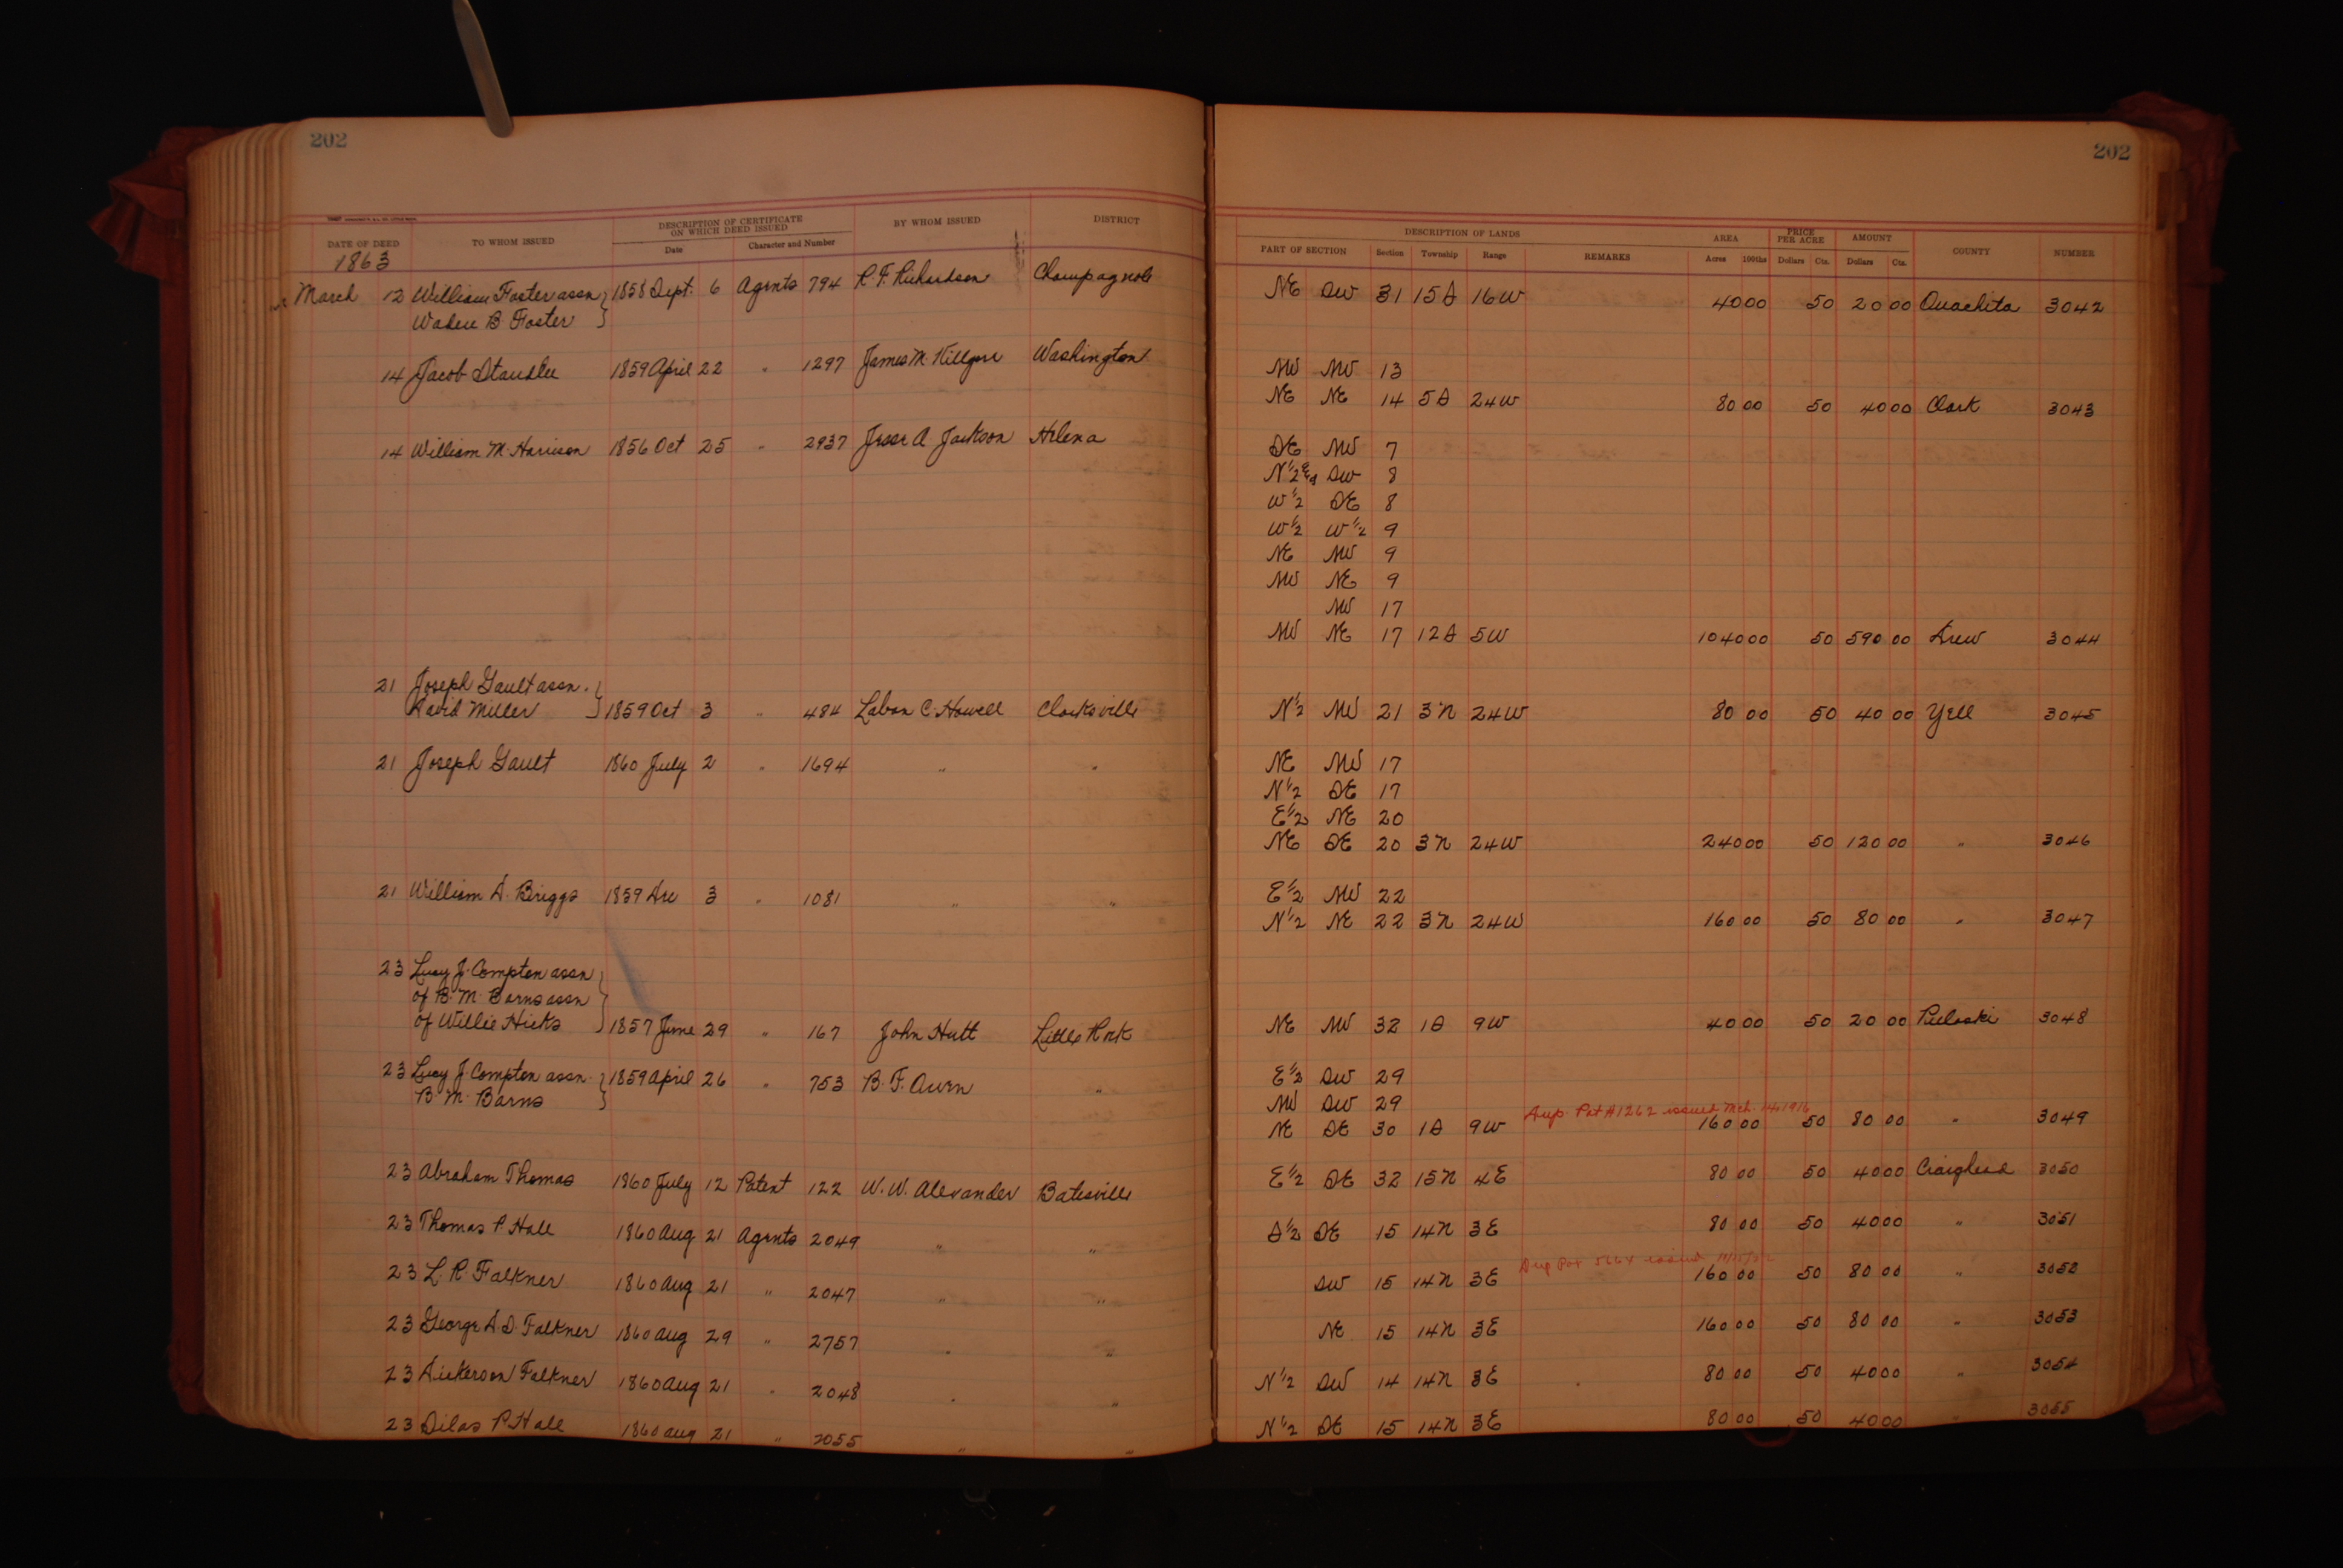 202
202
DATE OF DEED
TO WHOM ISSUED
DESCRIPTION OF CERTIFICATE
ON WHICH DEED ISSUED
Date
Character and Number
BY WHOM ISSUED
DISTRICT
PART OF SECTION
DESCRIPTION OF LANDS
Section
Township
Range
REMARKS
AREA
Acres
100ths
PRICE
PER ACRE
Dollars
Cts.
AMOUNT
Dollars
Cts.
COUNTY
NUMBER
1863
March 12 William Foster assn 1858 Sept. 6 Agents 794 R. F. Richardson Champagnole NE SW 31 15 S 16 W 40 00 50 20 00 Ouachita 3042
B. Foster
14 Jacob 1859 April 22 " 1297 James M. Killgore Washington NW NW 13
NE NE 14 5 S 24 W 80 00 50 40 00 Clark 3043
14 William M. Harrison 1856 Oct 25 " 2937 Jesse A Jackson Helena SE NW 7
N 1/2 & SW 8
W 1/2 SE 8
W 1/2 W 1/2 9
NE NW 9
NW NE 9
NW 17
NW NE 17 12 S 5 W 1040 00 50 590 00 Drew 3044
21 Joseph Gault assn.
David Miller 1859 Oct 3 " 484 Laban C. Howell Clarksville N 1/2 NW 21 3 N 24 W 80 00 50 40 00 Yell 3045
21 Joseph Gault 1860 July 2 " 1694 " " NE NW 17
N 1/2 SE 17
E 1/2 NE 20
NE SE 20 3 N 24 W 240 00 50 120 00 " 3046
21 William D. Briggs 1859 Dec 3 " 1081 " " E 1/2 NW 22
N 1/2 NE 22 3 N 24 W 160 00 50 80 00 " 3047
23 Lucy J. Compton assn
of B. M. Barns assn
of Willie Hicks 1857 June 29 " 167 John Hutt Little Rock NE NW 32 1 S 9 W 40 00 50 20 00 Pulaski 3048
23 Lucy J. Compton assn. 1859 April 26 " 753 B. F. Owen " E 1/2 SW 29
B. M. Barns NW SW 29
Sup. Pat # 1262 issued Mch. 14, 1916
NE SE 30 1 S 9 W 160 00 50 80 00 " 3049
23 Abraham Thomas 1860 July 12 Patent 122 W. W. Alexander Batesville E 1/2 SE 32 15 N 4 E 80 00 50 40 00 Craighead 3050
23 Thomas P. Hall 1860 Aug 21 Agents 2049 " " S 1/2 SE 15 14 N 3 E 80 00 50 40 00 " 3051
Dup Pat issued
23 L. R. Falkner 1860 Aug 21 " 2047 " " SW 15 14 N 3 E 160 00 50 80 00 " 3052
23 George S. D. Falkner 1860 Aug 29 " 2757 " " NE 15 14 N 3 E 160 00 50 80 00 " 3053
23 Dickerson Falkner 1860 Aug 21 " 2048 " " N 1/2 SW 14 14 N 3 E 80 00 50 40 00 " 3054
23 Silas P. Hall 1860 Aug 21 " 2055 " " N 1/2 SE 15 14 N 3 E 80 00 50 40 00 " 3055